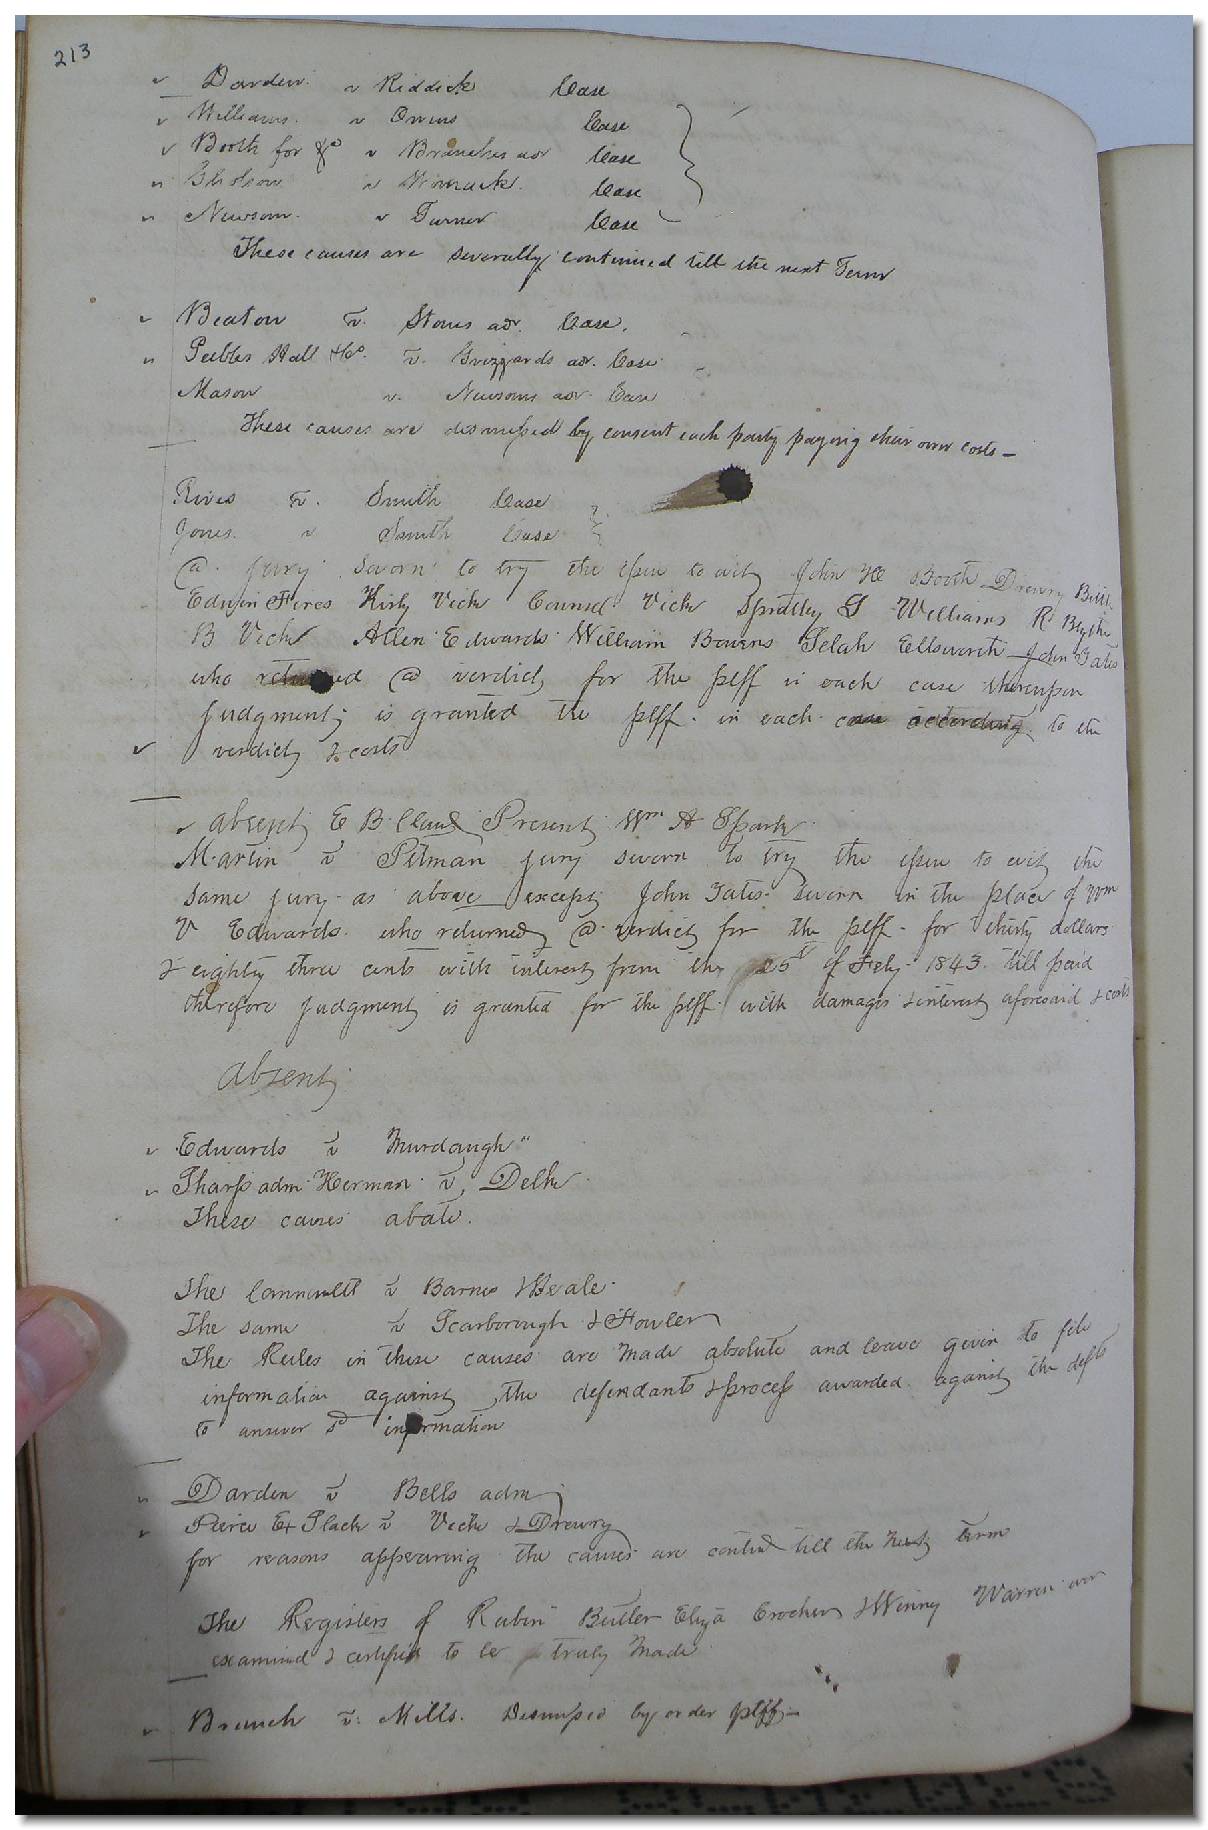 213
Darden v Riddick Case
Williams v Owens Case
Booth for &c v Branches adr Case
Gholson v Womack Case
Newsom v Turner Case
These causes are severally continued till the next Term
Beaton v. Stons adr. Case.
Peebles Hall & Co. v. Grizzards adr. Case
Mason v. Newsoms adr. Case
These causes are dismissed by consent each party paying their own costs—
Rives v. Smith Case
Jones v Smith Case
a jury sworn to try the issue to wit John Booth Drewry
Edwin Vick Council Vick Spratley Williams R
B Vick Allen Edwards William Bowers Selah Ellsworth John Tates
who returned a verdict for the plff in each case thereupon
judgment is granted the plff. in each case according to the
verdict & costs
absent E B Claud Present Wm A Spark
Martin v Pitman jury sworn to try the issue to wit the
same jury as above except John Tates sworn in the place of Wm
V Edwards who returned a verdict for the plff. for thirty dollars
& eighty three cents with interest from the 25th of Feby 1843 till paid
therefore judgment is granted for the plff with damages & interest aforesaid & costs
absent
Edwards v Murdaugh"
Tharp adm Herman v, Delk
These causes abate.
The Commwlth v Barnes & Beale
The same v Scarborough & Fowler
The Rules in these causes are made absolute and leave given to file
information against the defendants & process awarded against the defts
to answer sd information
Darden v Bells adm
Pierce Ex v Vick & Drewry
for reasons appearing the causes are contind till the next term
The Registers of Rubin Butler Eliza Crocker & Winny Warren
examined & certified to be truly made
Branch v. Mills. Dismissed by order plff—